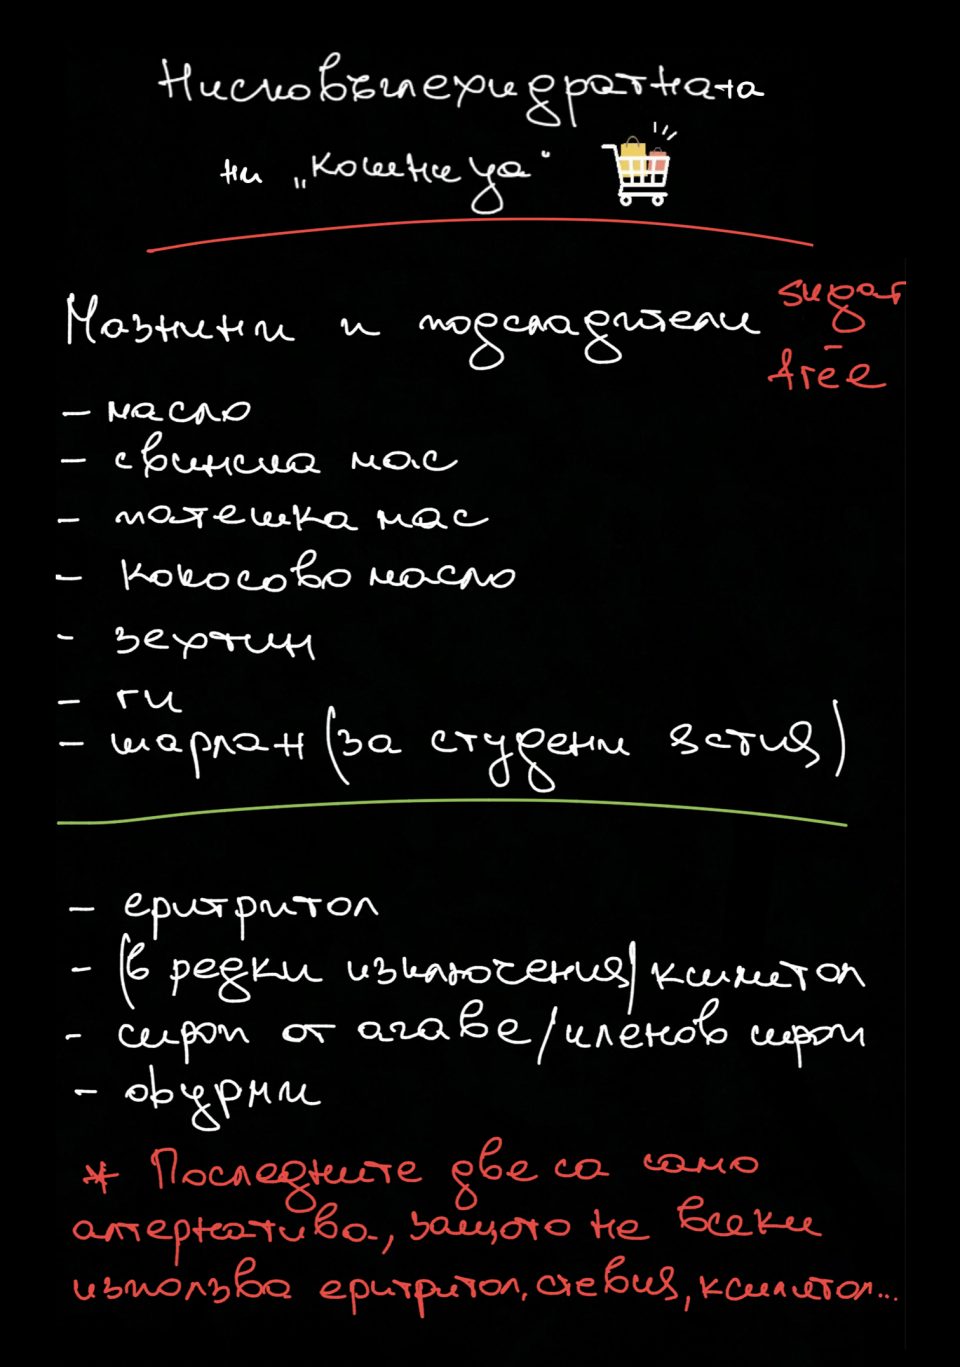 Нисковъглехидратната
ни „кошница“
Мазнини и подсладители
sugar
-
free
- масло
- свинска мас
- патешка мас
- кокосово масло
- зехтин
- ги
- шарлан (за студени ястия)
- еритритол
- (в редки изключения) ксилитол
- сироп от агаве/кленов сироп
- фурми
* Последните две са само
алтернатива, защото не всеки
използва еритритол, стевия, ксилитол...